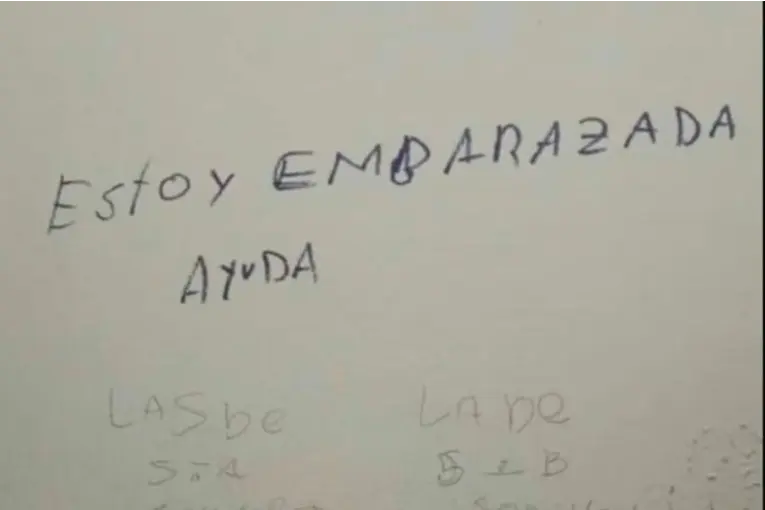 Estoy EMBARAZADA
AYUDA
LAS De LA DE
5-A 5-B